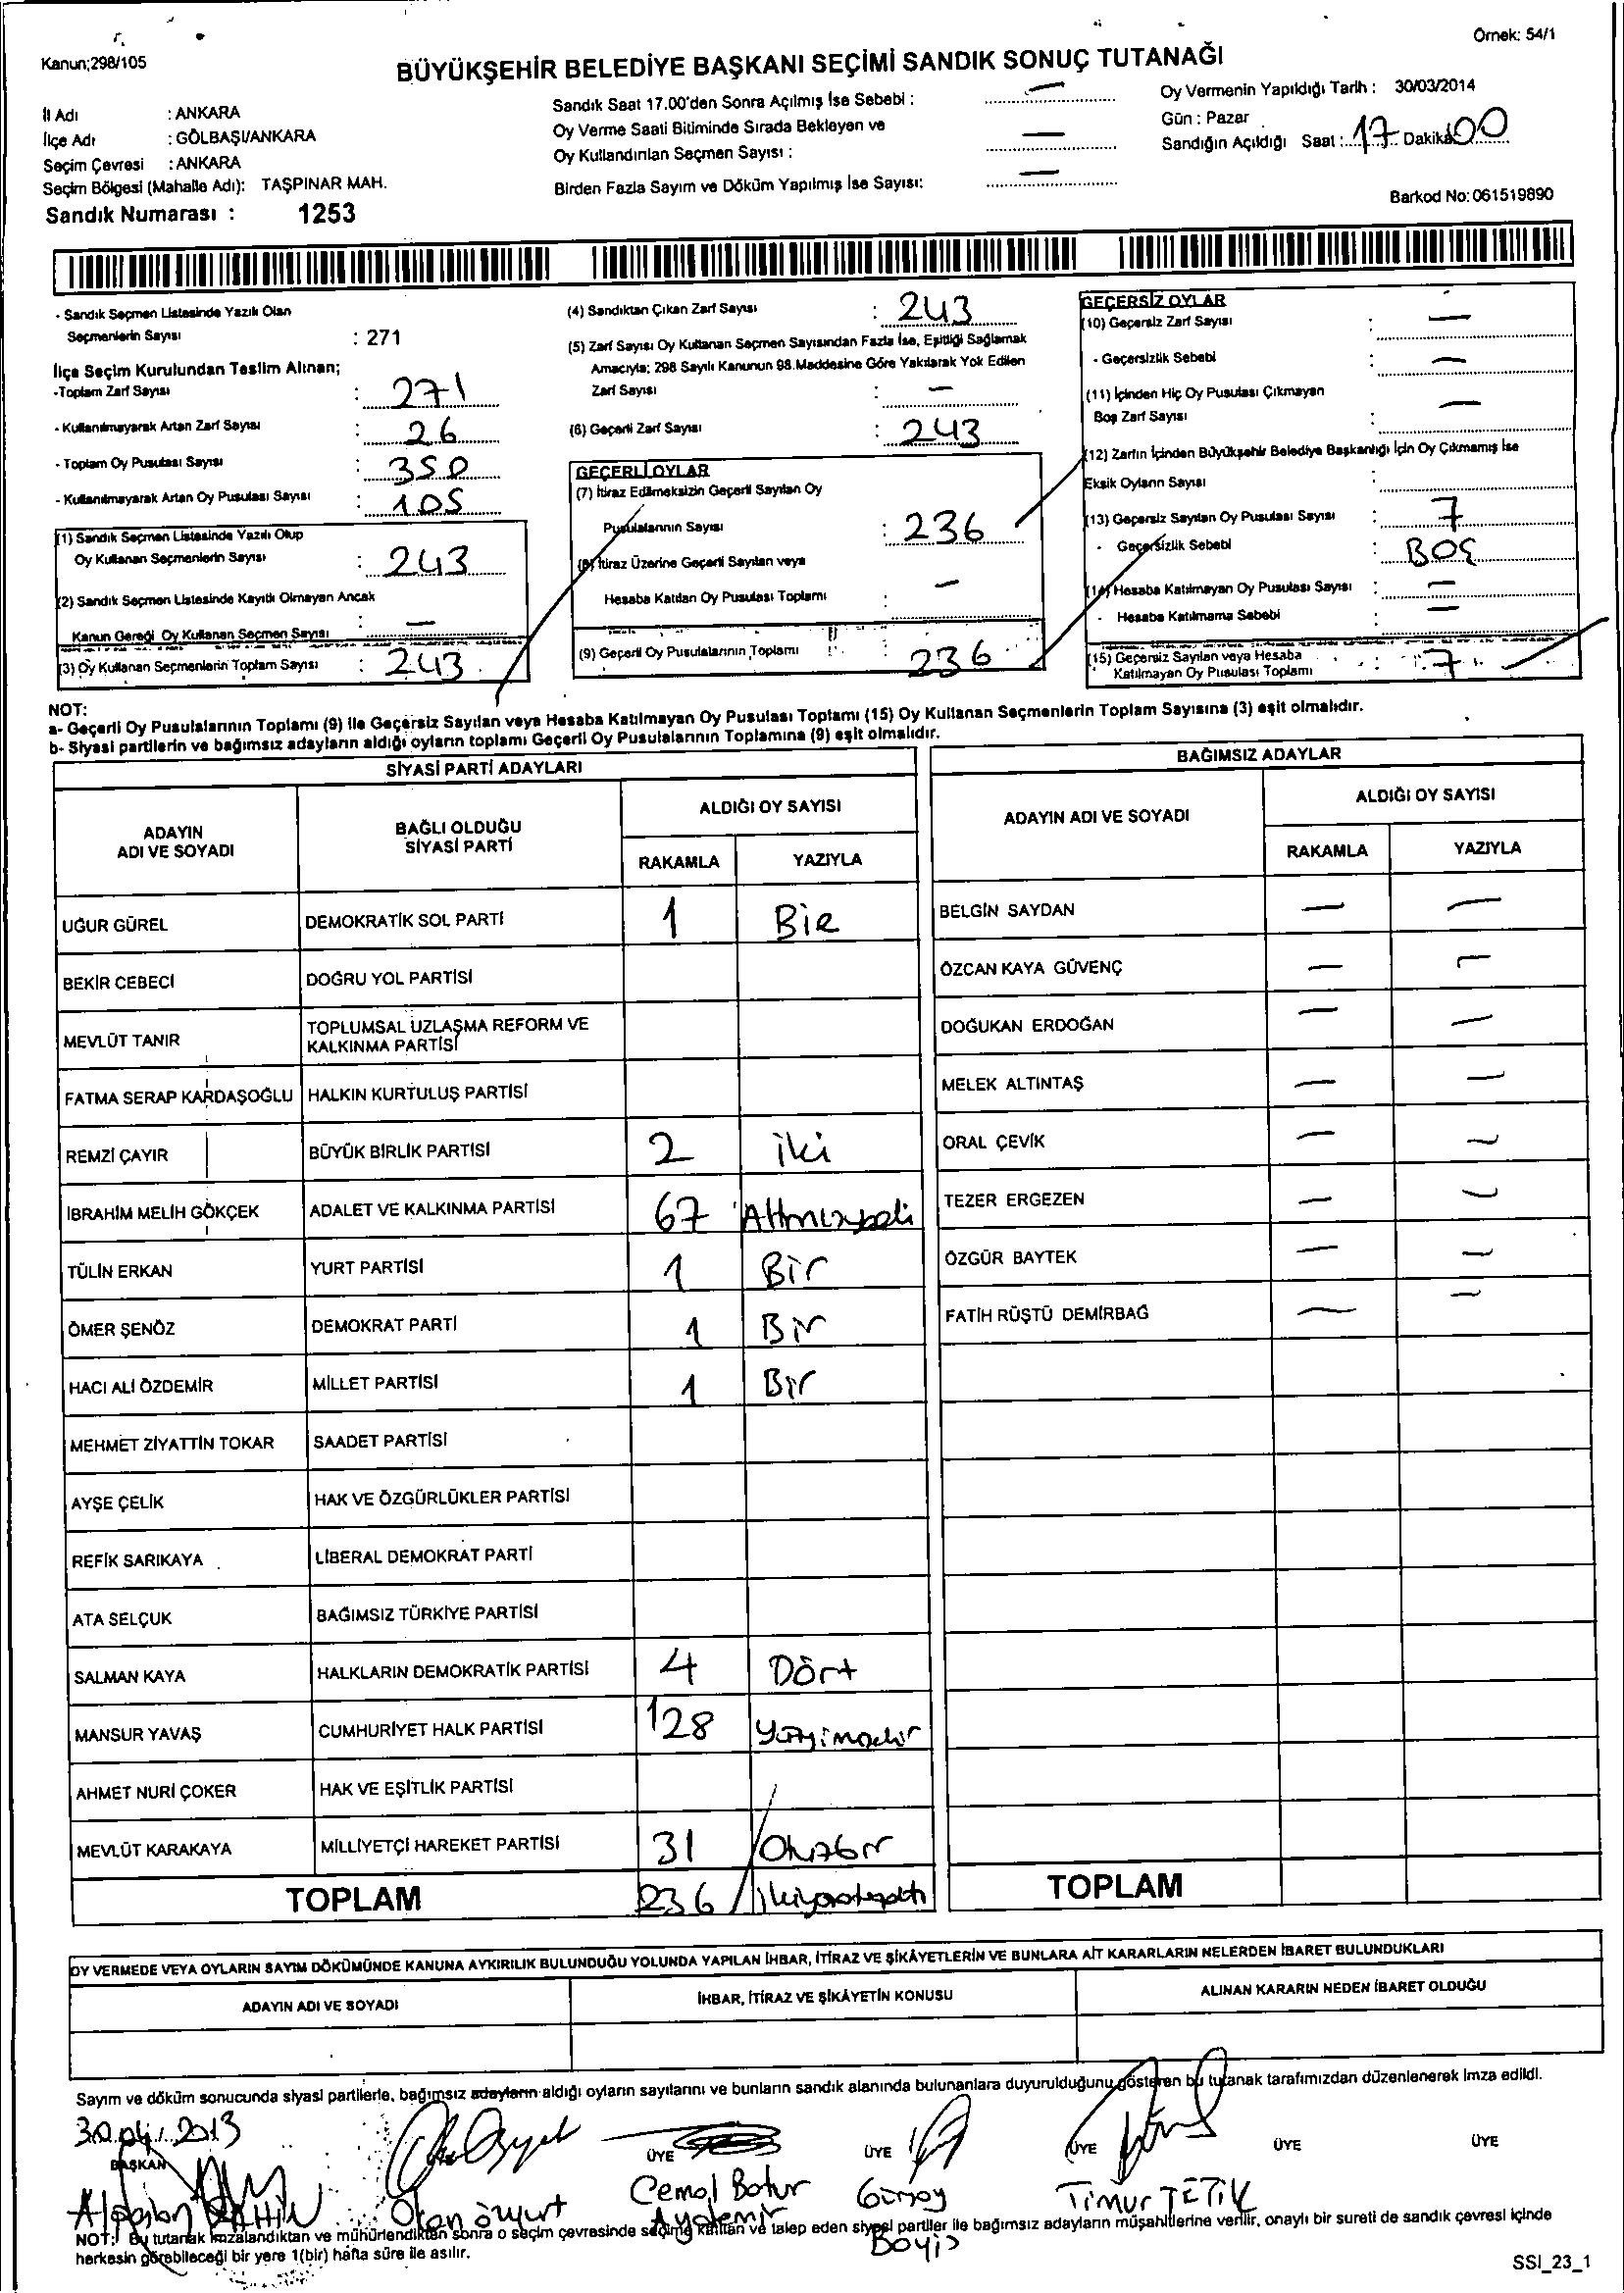 Örnek: 54/1
Kanun;298/105
BÜYÜKŞEHİR BELEDİYE BAŞKANI SEÇİMİ SANDIK SONUÇ TUTANAĞI
İl Adı : ANKARA
İlçe Adı : GÖLBAŞI/ANKARA
Seçim Çevresi : ANKARA
Seçim Bölgesi (Mahalle Adı): TAŞPINAR MAH.
Sandık Numarası : 1253
Sandık Saat 17.00'den Sonra Açılmış İse Sebebi : —
Oy Verme Saati Bitiminde Sırada Bekleyen ve
Oy Kullandırılan Seçmen Sayısı : —
Birden Fazla Sayım ve Döküm Yapılmış İse Sayısı: —
Oy Vermenin Yapıldığı Tarih : 30/03/2014
Gün : Pazar
Sandığın Açıldığı Saat : 17 Dakika 00
Barkod No: 061519890
- Sandık Seçmen Listesinde Yazılı Olan
Seçmenlerin Sayısı : 271
İlçe Seçim Kurulundan Teslim Alınan;
-Toplam Zarf Sayısı : 271
- Kullanılmayarak Artan Zarf Sayısı : 26
- Toplam Oy Pusulası Sayısı : 350
- Kullanılmayarak Artan Oy Pusulası Sayısı : 105
(1) Sandık Seçmen Listesinde Yazılı Olup
Oy Kullanan Seçmenlerin Sayısı : 243
(2) Sandık Seçmen Listesinde Kayıtlı Olmayan Ancak
Kanun Gereği Oy Kullanan Seçmen Sayısı : —
(3) Oy Kullanan Seçmenlerin Toplam Sayısı : 243
(4) Sandıktan Çıkan Zarf Sayısı : 243
(5) Zarf Sayısı Oy Kullanan Seçmen Sayısından Fazla İse, Eşitliği Sağlamak
Amacıyla; 298 Sayılı Kanunun 98.Maddesine Göre Yakılarak Yok Edilen
Zarf Sayısı : —
(6) Geçerli Zarf Sayısı : 243
GEÇERLİ OYLAR
(7) İtiraz Edilmeksizin Geçerli Sayılan Oy
Pusulalarının Sayısı : 236
(8) İtiraz Üzerine Geçerli Sayılan veya
Hesaba Katılan Oy Pusulası Toplamı : —
(9) Geçerli Oy Pusulalarının Toplamı : 236
GEÇERSİZ OYLAR
(10) Geçersiz Zarf Sayısı : —
- Geçersizlik Sebebi : —
(11) İçinden Hiç Oy Pusulası Çıkmayan
Boş Zarf Sayısı : —
(12) Zarfın İçinden Büyükşehir Belediye Başkanlığı İçin Oy Çıkmamış İse
Eksik Oyların Sayısı :
(13) Geçersiz Sayılan Oy Pusulası Sayısı : 7
- Geçersizlik Sebebi : BOŞ
(14) Hesaba Katılmayan Oy Pusulası Sayısı : —
- Hesaba Katılmama Sebebi : —
(15) Geçersiz Sayılan veya Hesaba
Katılmayan Oy Pusulası Toplamı : 7
NOT:
a- Geçerli Oy Pusulalarının Toplamı (9) ile Geçersiz Sayılan veya Hesaba Katılmayan Oy Pusulası Toplamı (15) Oy Kullanan Seçmenlerin Toplam Sayısına (3) eşit olmalıdır.
b- Siyasi partilerin ve bağımsız adayların aldığı oyların toplamı Geçerli Oy Pusulalarının Toplamına (9) eşit olmalıdır.
SİYASİ PARTİ ADAYLARI
ADAYIN ADI VE SOYADI BAĞLI OLDUĞU SİYASİ PARTİ ALDIĞI OY SAYISI
RAKAMLA YAZIYLA
UĞUR GÜREL DEMOKRATİK SOL PARTİ 1 Bir
BEKİR CEBECİ DOĞRU YOL PARTİSİ
MEVLÜT TANIR TOPLUMSAL UZLAŞMA REFORM VE KALKINMA PARTİSİ
FATMA SERAP KARDAŞOĞLU HALKIN KURTULUŞ PARTİSİ
REMZİ ÇAYIR BÜYÜK BİRLİK PARTİSİ 2 iki
İBRAHİM MELİH GÖKÇEK ADALET VE KALKINMA PARTİSİ 67
TÜLİN ERKAN YURT PARTİSİ 1 Bir
ÖMER ŞENÖZ DEMOKRAT PARTİ 1 Bir
HACI ALİ ÖZDEMİR MİLLET PARTİSİ 1 Bir
MEHMET ZİYATTİN TOKAR SAADET PARTİSİ
AYŞE ÇELİK HAK VE ÖZGÜRLÜKLER PARTİSİ
REFİK SARIKAYA LİBERAL DEMOKRAT PARTİ
ATA SELÇUK BAĞIMSIZ TÜRKİYE PARTİSİ
SALMAN KAYA HALKLARIN DEMOKRATİK PARTİSİ 4 Dört
MANSUR YAVAŞ CUMHURİYET HALK PARTİSİ 128
AHMET NURİ ÇOKER HAK VE EŞİTLİK PARTİSİ
MEVLÜT KARAKAYA MİLLİYETÇİ HAREKET PARTİSİ 31
TOPLAM 236
BAĞIMSIZ ADAYLAR
ADAYIN ADI VE SOYADI ALDIĞI OY SAYISI
RAKAMLA YAZIYLA
BELGİN SAYDAN — —
ÖZCAN KAYA GÜVENÇ — —
DOĞUKAN ERDOĞAN — —
MELEK ALTINTAŞ — —
ORAL ÇEVİK — —
TEZER ERGEZEN — —
ÖZGÜR BAYTEK — —
FATİH RÜŞTÜ DEMİRBAĞ — —
TOPLAM
OY VERMEDE VEYA OYLARIN SAYIM DÖKÜMÜNDE KANUNA AYKIRILIK BULUNDUĞU YOLUNDA YAPILAN İHBAR, İTİRAZ VE ŞİKÂYETLERİN VE BUNLARA AİT KARARLARIN NELERDEN İBARET BULUNDUKLARI
ADAYIN ADI VE SOYADI İHBAR, İTİRAZ VE ŞİKÂYETİN KONUSU ALINAN KARARIN NEDEN İBARET OLDUĞU
Sayım ve döküm sonucunda siyasi partilerle, bağımsız adayların aldığı oyların sayılarını ve bunların sandık alanında bulunanlara duyurulduğunu gösteren bu tutanak tarafımızdan düzenlenerek imza edildi.
30.04.2013
BAŞKAN ÜYE ÜYE ÜYE ÜYE ÜYE
Cemal Batur Aydemir
Gürsoy
Timur TETİK
NOT: Bu tutanak imzalandıktan ve mühürlendikten sonra o seçim çevresinde seçime katılan ve talep eden siyasi partiler ile bağımsız adayların müşahitlerine verilir, onaylı bir sureti de sandık çevresi içinde
herkesin görebileceği bir yere 1(bir) hafta süre ile asılır.
SSI_23_1